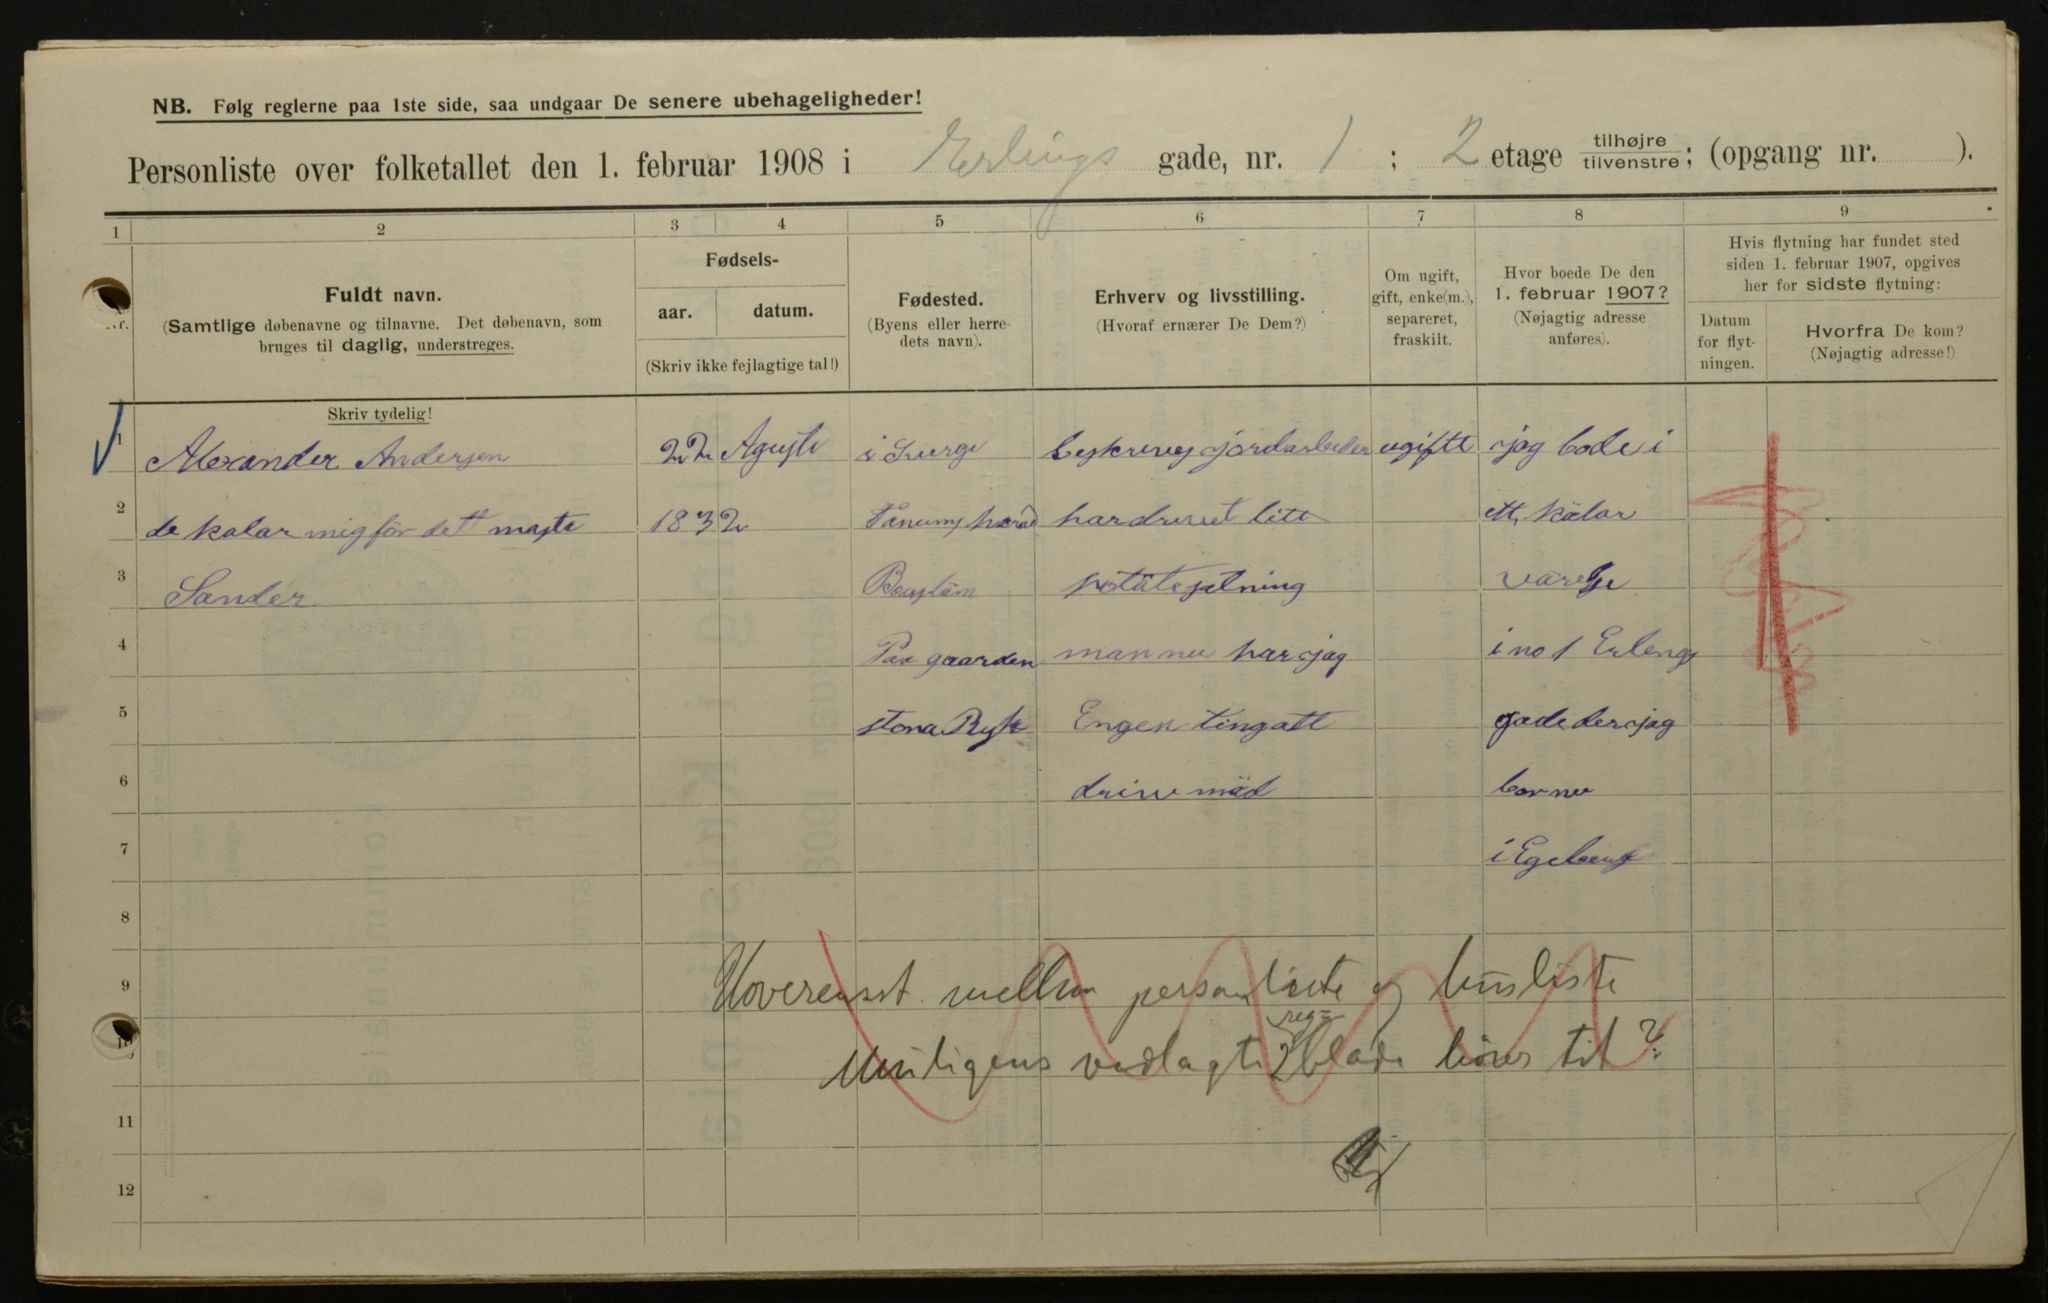 NB. Følg reglerne paa 1ste side, saa undgaar De senere ubehageligheder!
Personliste over folketallet den 1. februar 1908 i Erlings gade, nr. 1 ; 2 etage tilhøjre/tilvenstre; (opgang nr. ).
1 2 3 4 5 6 7 8 9
Nr.
Fuldt navn.
(Samtlige døbenavne og tilnavne. Det døbenavn, som
bruges til daglig, understreges.
Fødsels-
aar. datum.
(Skriv ikke fejlagtige tal!)
Fødested.
(Byens eller herre-
dets navn).
Erhverv og livsstilling.
(Hvoraf ernærer De Dem?)
Om ugift,
gift, enke(m.),
separeret,
fraskilt.
Hvor boede De den
1. februar 1907?
(Nøjagtig adresse
anføres).
Hvis flytning har fundet sted
siden 1. februar 1907, opgives
her for sidste flytning:
Datum
for flyt-
ningen.
Hvorfra De kom?
(Nøjagtig adresse!)
Skriv tydelig!
1 Alexander Andersen 22 Aguste i jordarbeder ugifte jag bode i
2 de kalar mig för dett maste 1832 Tanums harad har drevet litt ett kälar
3 Sander
4 gaarden man nu har jag i no 1 Erlengs
5 stona Engen ting att gade der jag
6 drive mäd bor nu
7 i Egeberg
8
9 Uoverensst. mellem personliste og husliste
reg=
10 Muligens vedlagte 2 blade hører til?
11
12